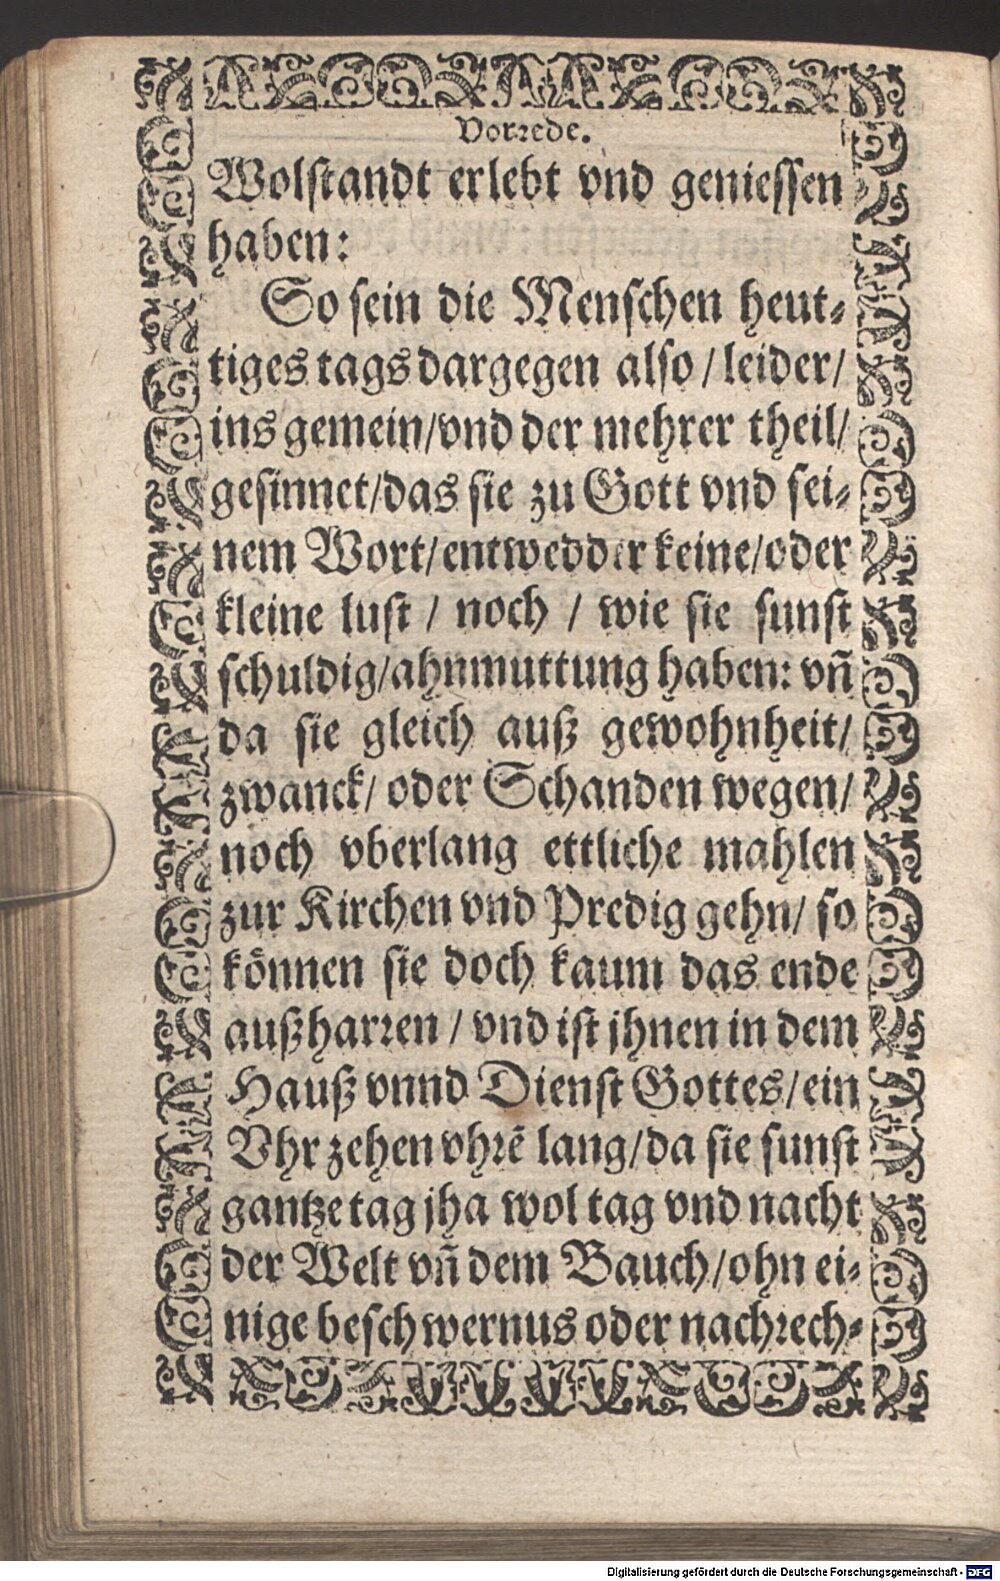 Vorrede.
Wolstandt erlebt vnd geniessen
haben:
So sein die Menschen heut-
tiges tags dargegen also / leider /
ins gemein / vnd der mehrer theil /
gesinnet / das sie zu Gott vnd sei-
nem Wort / entwedder keine / oder
kleine lust / noch / wie sie sunst
schuldig / ahnmuttung haben: vñ
da sie gleich auß gewohnheit /
zwanck / oder Schanden wegen /
noch vberlang ettliche mahlen
zur Kirchen vnd Predig gehn / so
können sie doch kaum das ende
außharren / vnd ist jhnen in dem
Hauß vnnd Dienst Gottes / ein
Vhr zehen vhrē lang / da sie sunst
gantze tag jha wol tag vnd nacht
der Welt vñ dem Bauch / ohn ei-
nige beschwernus oder nachrech-
Digitalisierung gefördert durch die Deutsche Forschungsgemeinschaft - DFG